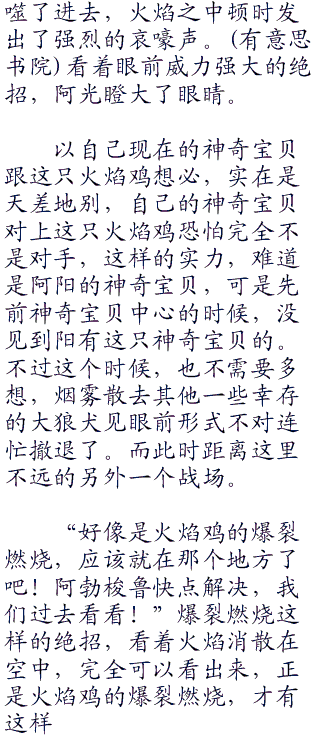 噬了进去，火焰之中顿时发
出了强烈的哀嚎声。(有意思
书院)看着眼前威力强大的绝
招，阿光瞪大了眼睛。
以自己现在的神奇宝贝
跟这只火焰鸡想必，实在是
天差地别，自己的神奇宝贝
对上这只火焰鸡恐怕完全不
是对手，这样的实力，难道
是阿阳的神奇宝贝，可是先
前神奇宝贝中心的时候，没
见到阳有这只神奇宝贝的。
不过这个时候，也不需要多
想，烟雾散去其他一些幸存
的大狼犬见眼前形式不对连
忙撤退了。而此时距离这里
不远的另外一个战场。
“好像是火焰鸡的爆裂
燃烧，应该就在那个地方了
吧！阿勃梭鲁快点解决，我
们过去看看！”爆裂燃烧这
样的绝招，看着火焰消散在
空中，完全可以看出来，正
是火焰鸡的爆裂燃烧，才有
这样